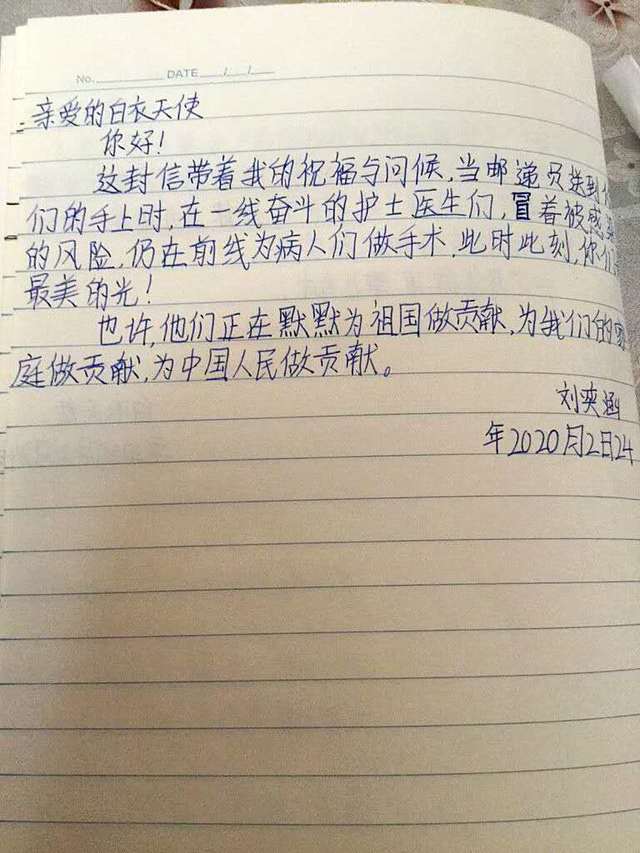 No. DATE / /
亲爱的白衣天使
你好!
这封信带着我的祝福与问候,当邮递员送到你
们的手上时,在一线奋斗的护士医生们,冒着被感染
的风险,仍在前线为病人们做手术,此时此刻,你们
最美的光!
也许,他们正在默默为祖国做贡献,为我们的家
庭做贡献,为中国人民做贡献。
刘奕涵
年2020月2日24